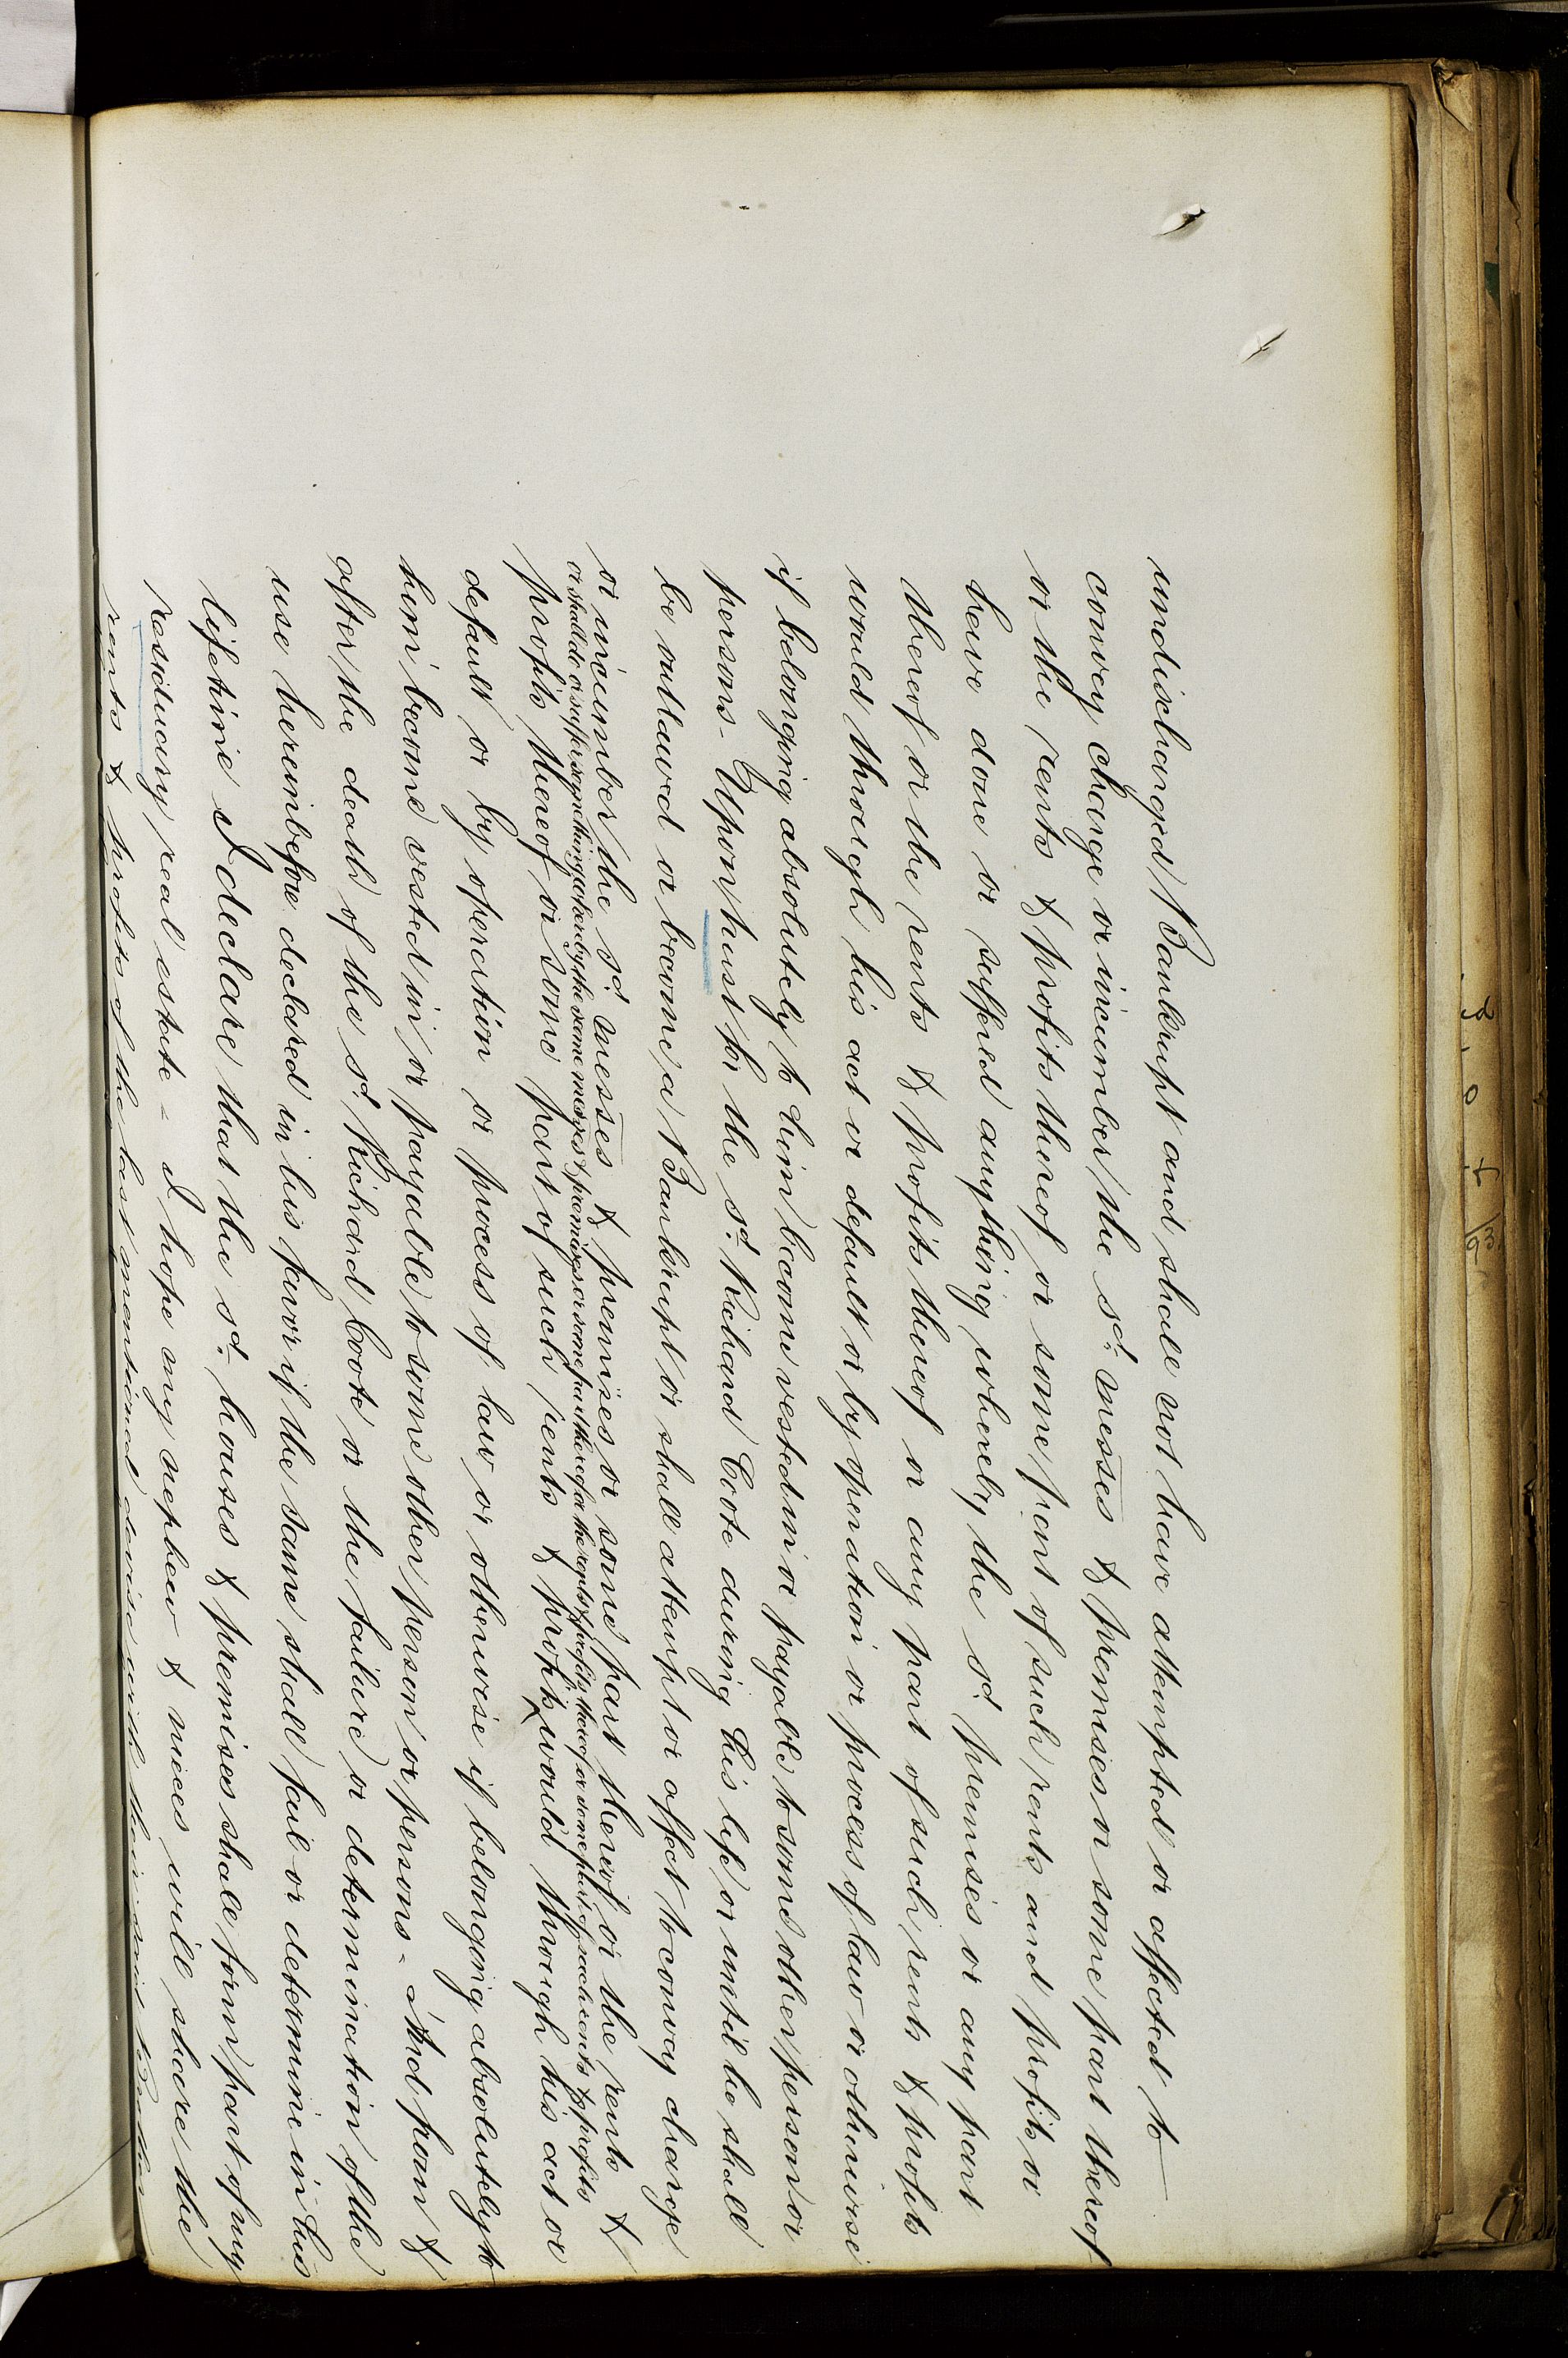 undischarged Bankrupt and shall not have attempted or affected to
convey charge or incumber the sd. messes & premises or some part thereof
or the rents & profits thereof or some part of such rents and profits or
have done or suffered anything whereby the sd. premises or any part
thereof or the rents & profits thereof or any part of such rents & profits
would through his act or default or by operation or process of law or otherwise
if belonging absolutely to him become vested in or payable to some other person or
persons - Upon trust for the sd. Richard Coote during his life or until he shall
be outlawed or become a Bankrupt or shall attempt or affect to convey charge
or incumber the sd. messes & premises or some part thereof or the rents &
or shall do or suffer something whereby the same messes & premises or some part thereof or the rents & profits thereof or some part of such rents & profits
profits thereof or some part of such rents & profits ^ would through his act or
default or by operation or process of law or otherwise if belonging absolutely to
him become vested in or payable to some other person or persons - And from &
after the death of the sd. Richard Coote or the failure or determination of the
use hereinbefore declared in his favor if the same shall fail or determine in his
lifetime I declare that the sd. houses & premises shall form part of my
residuary real estate - I hope my nephew & nieces will share the
rents & profits of the last mentioned devise with their
id
o
93.